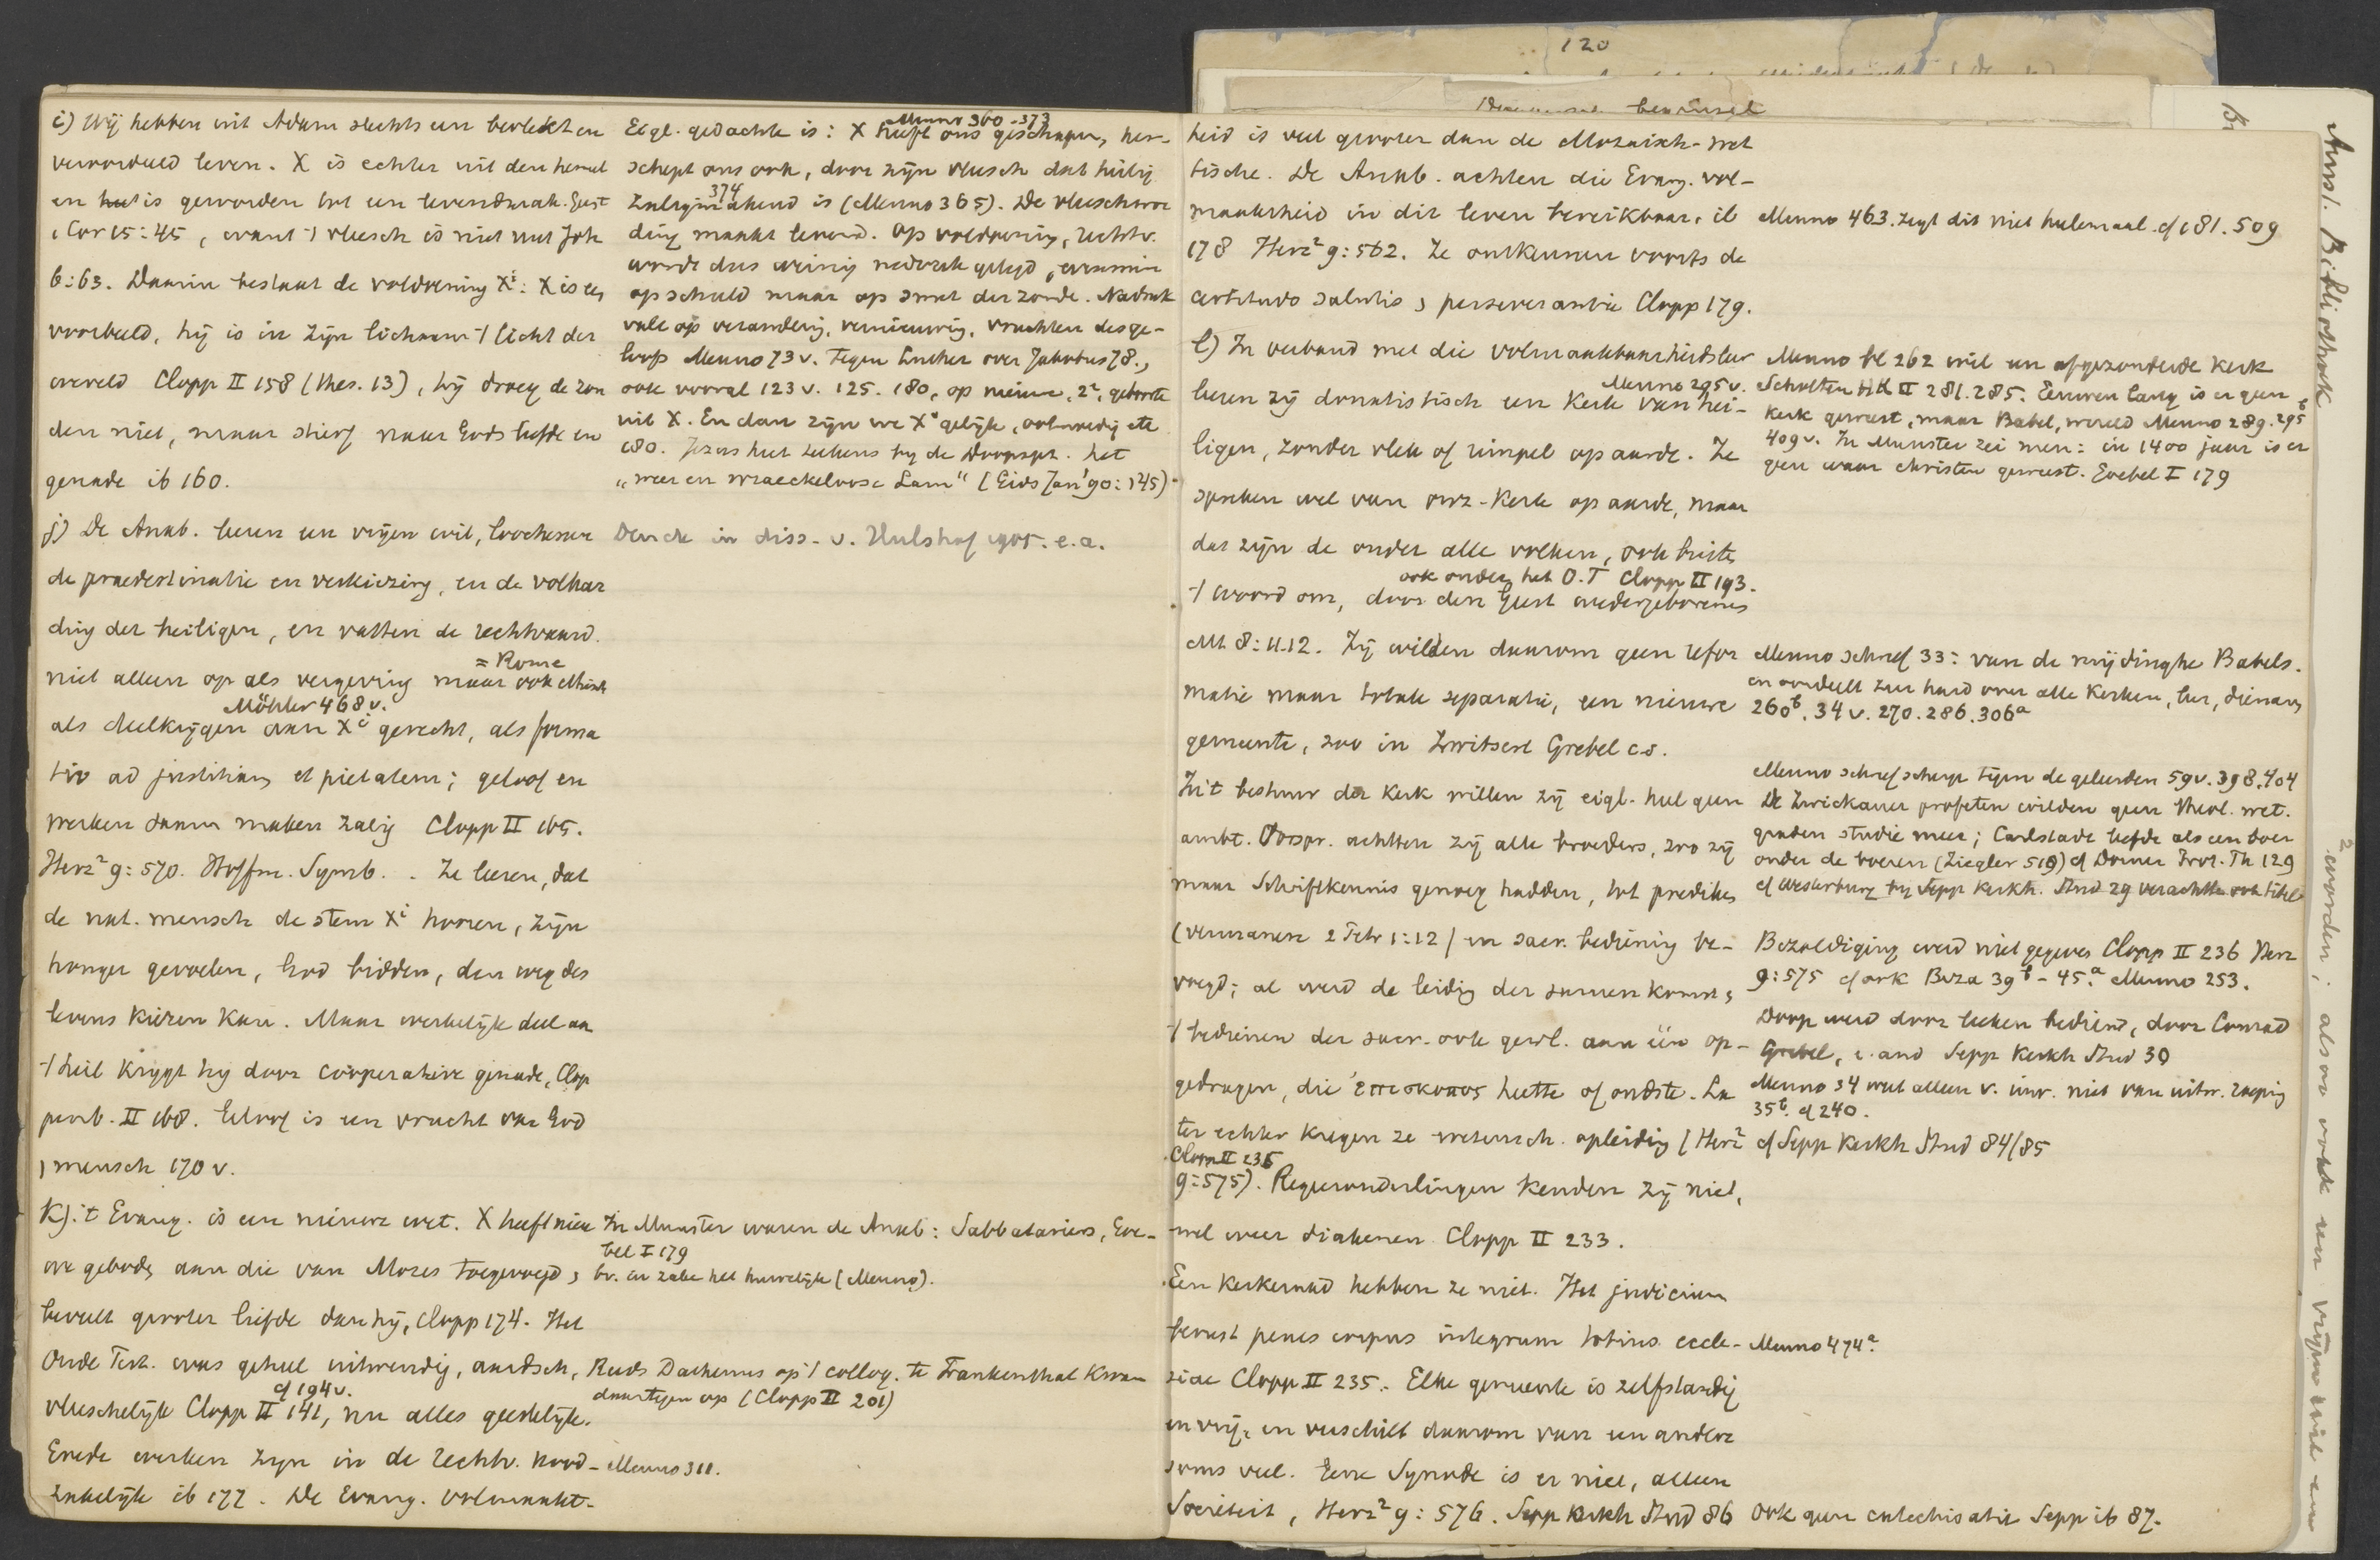 i) Wij hebben uit Adam slechts een bevlekt en
veroordeeld leven. X is echter uit den hemel
en is geworden tot een levendmak. Geest
1 Cor 15:45, want 't vleesch is niet nut Joh
6:63. Daarin bestaat de voldoening Xi: X is een
voorbeeld, hij is in zijn lichaam 't licht der
wereld Clopp II 158 (thes. 13), hij droeg de zon
den niet, maar stierf naar Gods liefde en
genade ib 160.
j) De Anab. leeren een vrijen wil, loochenen
de praedestinatie en verkiezing, en de volhar
ding der heiligen, en vatten de rechtvaard.
= Rome
niet alleen op als vergeving maar ook ethisch
Möhler 468 v.
als deelkrijgen aan Xi gerecht, als forma
tio ad justitiam et pietatem; geloof en
werken samen maken zalig Clopp II 165.
Herz² 9:570. Hoffm. Symb. Ze leeren, dat
de nat. mensch de stem Xi hooren, zijn
honger gevoelen, God bidden, den weg des
levens kiezen kan. Maar werkelijk deel aan
't heil krijgt hij door coöperatieve genade, Clop
penb. II 168. Geloof is een vrucht van God
, mensch 170 v.
k) 't Evang. is een nieuwe wet. X heeft nieu
we geboden aan die van Mozes toegevoegd,
beveelt grooter liefde dan hij, Clopp 174. Het
Oude Test. was geheel uitwendig, aardsch,
cf 194 v.
vleeschelijk Clopp II 141, nu alles geestelijk.
Goede werken zijn in de rechtv. nood-
zakelijk ib 177. De Evang. volmaakt-
Menno 360-373
Eigl. gedachte is: X heeft ons geschapen, her-
schept ons ook, door zijn vleesch dat heilig
374
zaligmakend is (Menno 365). De vleeschwor
ding maakt levend. Op voldoening, rechtv.
wordt dus weinig nadruk gelegd, evenmin
op schuld maar op smet der zonde. Nadruk
valt op verandering, vernieuwing, vruchten des ge-
loofs Menno 73 v. Tegen Luther over Jakobus 78.,
ook vooral 123 v. 125. 180, op nieuwe, 2e, geboorte
uit X. En dan zijn we X gelijk, ootmoedig etc
180. Jezus heet telkens bij de Doopsgez. het
„weer en wraeckeloose Lam" (Gids Jan '90: 145)
Denck in diss. v. Hulshof 1905. e.a.
In Munster waren de Anab: Sabbatariërs, Goe-
bel I 179
bv. en zake het huwelijk (Menno).
Ruds Dathenus op 't colloq. te Frankenthal kwam
daartegen op (Clopp II 201)
Menno 311.
heid is veel grooter dan de Mozaisch-wet
tische. De Anab. achten die Evang. vol-
maaktheid in dit leven bereikbaar, ib
178 Herz² 9:562. Ze ontkennen voorts de
certitudo salutis, perseverantie Clopp 179.
l) In verband met die volmaakbaarheidsleer
Menno 295 v.
leeren zij donatistisch een kerk van hei-
ligen, zonder vlek of rimpel op aarde. Ze
spreken wel van onz-kerk op aarde, maar
dat zijn de onder alle volken, ook buiten
ook onder het O.T Clopp II 193.
't woord om, door den Geest wedergeborenen
Mt 8:11.12. Zij wilden daarom geen refor
matie maar totale separatie, een nieuwe
gemeente, zoo in Zwitserl Grebel c.s.
In 't bestuur der kerk willen zij eigl. heel geen
ambt. Oorspr. achtten zij alle broeders, zoo zij
maar Schriftkennis genoeg hadden, tot prediken
(vermanen 2 Petr 1:12) en sacr. bediening be-
voegd; al werd de leiding der samenkomst,
't bedienen der sacr. ook gewl. aan één op-
gedragen, die ἐπισκοπος heette of oudste. La
ter echter kregen ze wetensch. opleiding (Herz²
Clopp II 235
9:575). Regeerouderlingen kenden zij niet,
wel weer diakenen Clopp II 233.
Een kerkeraad hebben ze niet. Het judicium
berust penes corpus integrum totius eccle-
siae Clopp II 235. Elke gemeente is zelfstandig
en vrij, en verschilt daarom van een andere
soms veel. Eene Synode is er niet, alleen
Societeit, Herz² 9:576. Sepp Kerkh Stud 86
Menno 463. zegt dit niet heelemaal. cf 181. 509
Menno bl 262 wil een afgezonderde kerk
Scholten HK II 281. 285. Eeuwen lang is er geen
kerk geweest, maar Babel, wereld Menno 289. 295b
409 v. In Munster zei men: in 1400 jaar is er
geen waar christen geweest. Goebel I 179
Menno schreef 33: van de mijdinghe Babels.
en oordeelt zeer hard over alle kerken, leer, dienaars
260b. 34 v. 270. 286. 306a
Menno schreef scherp tegen de geleerden 59 v. 398. 404
De Zwickauer profeten wilden geen theol. wet.
graden studie meer; Carlstadt leefde als een boer
onder de boeren (Ziegler 510) cf Dorner Prot. Th 129
cf Westerburg bij Sepp Kerkh. Stud 29 verachtte ook titel
Bezoldiging werd niet gegeven Clopp II 236 Herz
9:575 cf ook Beza 39b-45.a Menno 253.
Doop werd door leeken bediend, door Conrad
Grebel, e. and Sepp Kerkh Stud 30
Menno 34 weet alleen v. inw. niet van uitw. roeping
35b. cf 240.
cf Sepp Kerkh Stud 84/85
Menno 474a.
Ook geen catechisatie Sepp ib 87.
120
Amst. Bibliotheek
2 worden; alsoo ook een vrijen wil en